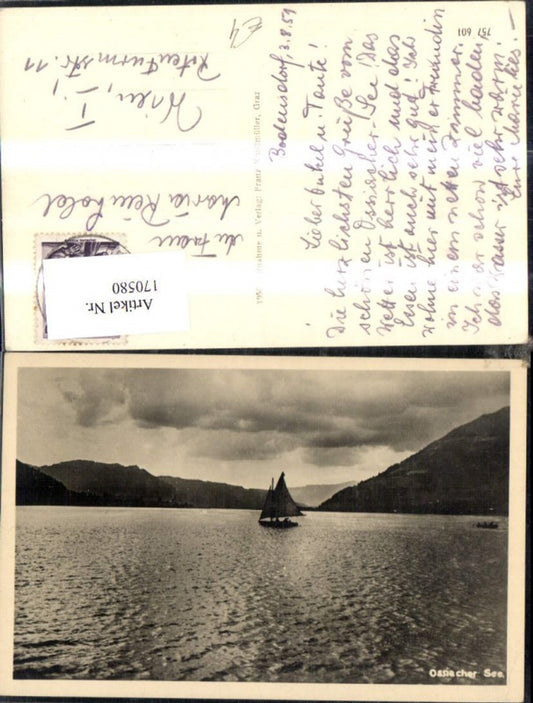 757 601
€4
Bodensdorf 3.8.59
Lieber Onkel u. Tante!
Die herzlichsten Grüße vom
schönen Ossiacher-See. Das
Wetter ist herrlich und das
Essen ist auch sehr gut! Ich
wohne hier mit
in einem netten Zimmer.
Ich war schon viel baden,
das Wasser ist sehr warm!
Eure
Aufnahme u. Verlag: Franz Graz
Maria Reinhold
Wien, I.,
Rotenturmstr. 11
Artikel Nr.
170580
Ossiacher See.